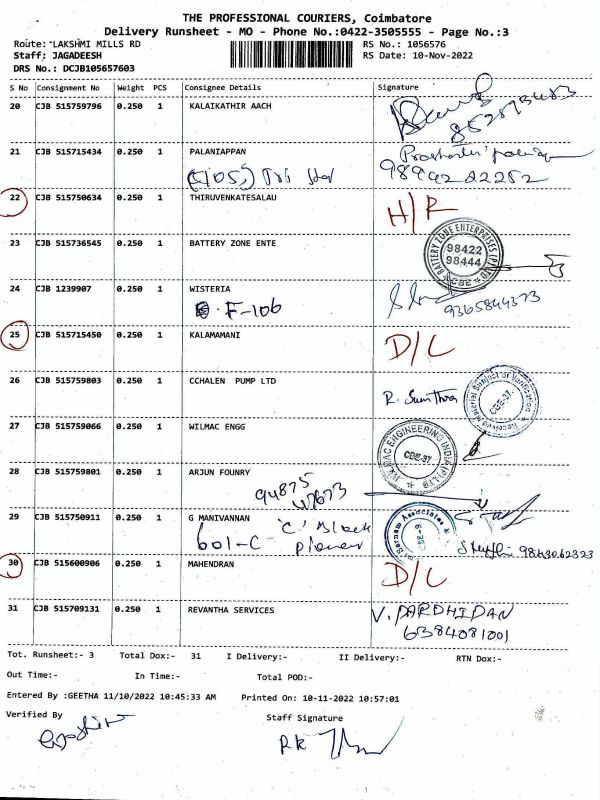 THE PROFESSIONAL COURIERS, Coimbatore
Delivery Runsheet - MO - Phone No.:0422-3505555 - Page No.:3
Route: LAKSHMI MILLS RD RS No.: 1056576
Staff: JAGADEESH RS Date: 10-Nov-2022
DRS No.: DCJB105657603
S No Consignment No Weight PCS Consignee Details Signature
20 CJB 515759796 0.250 1 KALAIKATHIR AACH
21 CJB 515715434 0.250 1 PALANIAPPAN
22 CJB 515750634 0.250 1 THIRUVENKATESALAU H/R
23 CJB 515736545 0.250 1 BATTERY ZONE ENTE
BATTERY ZONE ENTERPRISES (P) LTD
98422
98444
CBE
24 CJB 1239907 0.250 1 WISTERIA
F-106 9365844373
25 CJB 515715450 0.250 1 KALAMAMANI D/L
26 CJB 515759803 0.250 1 CCHALEN PUMP LTD
Material Subject of Verification
Received
CBE-37.
27 CJB 515759066 0.250 1 WILMAC ENGG
WILMAC ENGINEERING INDIA (P) LTD
CBE-37
28 CJB 515759801 0.250 1 ARJUN FOUNRY
94875
47673
29 CJB 515750911 0.250 1 G MANIVANNAN
'C' Block
601-C
Associates
30 CJB 515600906 0.250 1 MAHENDRAN D/L
31 CJB 515709131 0.250 1 REVANTHA SERVICES V. PARDHIDAN
6384081001
Tot. Runsheet:- 3 Total Dox:- 31 I Delivery:- II Delivery:- RTN Dox:-
Out Time:- In Time:- Total POD:-
Entered By :GEETHA 11/10/2022 10:45:33 AM Printed On: 10-11-2022 10:57:01
Verified By Staff Signature